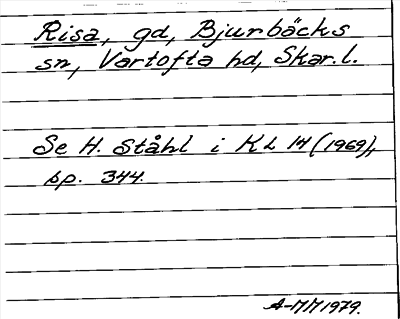 Risa, gd, Bjurbäcks
sn, Vartofta hd, Skar. l.
Se H. Ståhl i KL 14 (1969),
sp. 344.
A-MM 1979.